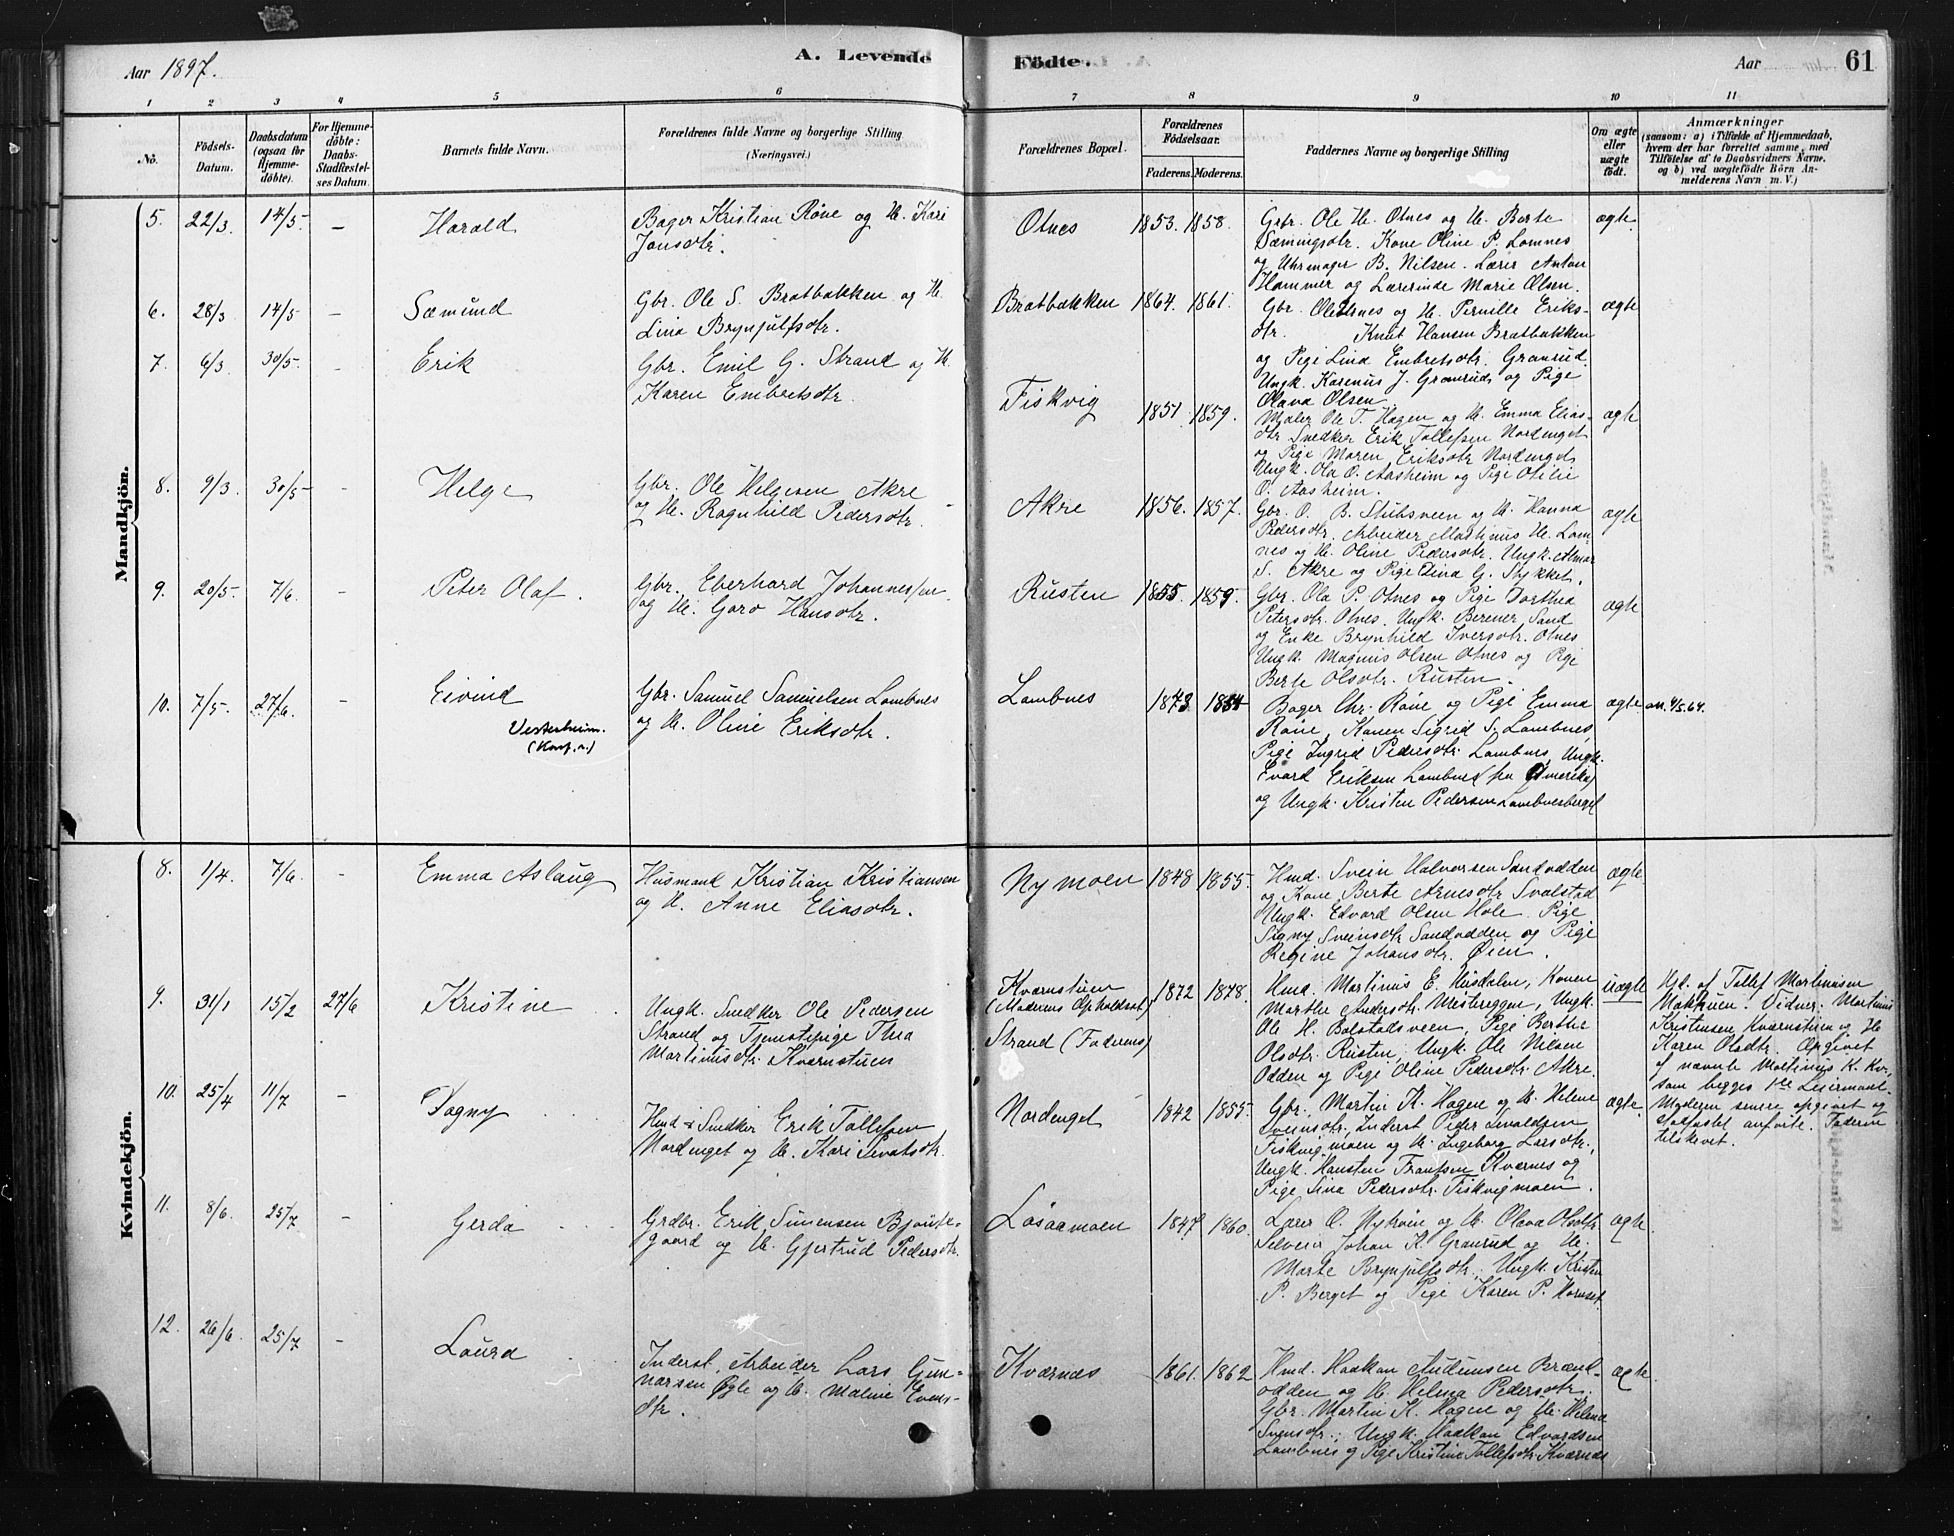 Aar 1897.
A. Levende Födte.
Aar
61
1 2 3 4 5 6 7 8 9 10 11
No.
Födsels-
Datum.
Daabsdatum
(ogsaa for
Hjemme-
döbte).
For Hjemme-
döbte:
Daabs-
Stadfæstel-
ses Datum.
Barnets fulde Navn.
Forældrenes fulde Navne og borgerlige Stilling
(Næringsvei.)
Forældrenes Bopæl.
Forældrenes
Födselsaar.
Faderens. Moderens.
Faddernes Navne og borgerlige Stilling
Om ægte
eller
uægte
födt.
Anmærkninger
(saasom: a) i Tilfælde af Hjemmedaab,
hvem der har forrettet samme, med
Tilföielse af to Daabsvidners Navne,
og b) ved uægtefödte Börn An-
melderens Navn m. V.)
Mandkjön.
5. 22/3. 14/5. – Harald
Bager Kristian Röne og H. Kari
Jonsdtr.
Otnes 1853. 1858.
Gbr. Ole H. Otnes og H. Berte
Sæmingsdtr. Kone Oline P. Lomnes
og Uhrmager B. Nilsen. Lærer Anton
Hammer og Lærerinde Marie Olsen.
ægte.
6. 28/3 14/5 – Sæmund
Gbr. Ole S. Bratbakken og H.
Lina Brynjulfsdtr.
Bratbakken 1864. 1861.
Gbr. Ole Otnes og H. Pernille Eriks-
dtr. Knut Hansen Bratbakken
og Pige Lina Embretsdtr. Granrud.
Ungk. Karenus J. Granrud og Pige
Olava Olsen.
ægte
7. 6/3 30/5. – Erik
Gbr. Emil G. Strand og H.
Karen Embretsdtr.
Fiskvig 1851 1859.
Maler Ole T. Hagen og H. Emma Elias-
dtr Snedker Erik Tollefsen Nordenget
og Pige Maren Eriksdtr Nordenget
Ungk. Ola O. Aasheim og Pige Otilie
O. Aasheim.
ægte
8. 9/3. 30/5 – Helge
Gbr. Ole Helgesen Akre
og H. Ragnhild Pedersdtr.
Akre 1856. 1857.
Gbr. O. B. Stubsveen og H. Hanna
Pedersdtr. Arbeider Martinus H. Lom-
nes og H. Oline Pedersdtr. Ungk. Almar
S. Akre og Pige Lina G. Stykket.
ægte
9. 20/5. 7/6. – Peter Olaf.
Gbr. Eberhard Johannessen
og H. Goro Hansdtr.
Rusten 1855. 1859.
Gbr. Ola P. Otnes og Pige Dorthea
Petersdtr. Otnes. Ungk. Berener Sand
og Enke Brynhild Iversdtr. Otnes
Ungk. Magnus Olsen Otnes og Pige
Berte Olsdtr. Rusten.
ægte
10. 7/5. 27/6. – Eivind
Vesterheim.
(Konf. n.)
Gbr. Samuel Samuelsen Lombnes
og H. Oline Eriksdtr.
Lombnes 1873 1884
Bager Chr. Röne og Pige Emma
Röne, Konen Sigrid S. Lombnes,
Pige Ingrid Pedersdtr. Lombnes, Ungk.
Evard Eriksen Lombnes (fra Amerika)
og Ungk. Kristen Pedersen Lombnesberget
ægte
4/5.64.
Kvindekjön.
8. 1/4. 7/6. – Emma Aslaug
Husmand Kristian Kristiansen
og H. Anne Eliasdtr.
Nymoen 1848 1855.
Hmd. Svein Halvorsen Sandodden
og Kone Berte Arnesdtr Svalstad
Ungk. Edvard Olsen Hole. Pige
Signy Sveinsdtr Sandodden og Pige
Regine Johansdtr. Öien.
ægte.
9. 31/1 15/2 27/6 Kristine
Ungk. Snedker Ole Pedersen
Strand og Tjenestepige Thea
Martinusdtr. Kværnstuen
Kværnstuen
(Moderens Opholdsst.)
Strand (Faderens)
1872 1878.
Hmd. Martinus E. Husdalen, Konen
Marthe Andersdtr. Misterèggen, Ungk.
Ole H. Bolstadsveen, Pige Berthe
Olsdtr. Rusten, Ungk. Ole Nilsen
Odden og Pige Oline Pedersdtr. Akre.
uægte
Hjd. af Tollef Martinusen
Møkkuen. Vidner: Martinus
Kristensen Kværnstuen og H
Karen Olsdtr. Opgivet
af nævnte Martinus K. Kv.,
som begges 1ste Leiermaal.
Moderen senere opgivet og
Attestet anförte. Faderen
tilskrevet.
10. 25/4 11/7 – Dagny
Hmd & Snedker Erik Tollefsen
Nordenget og H. Kari Sivatsdtr.
Nordenget 1842 1855.
Gbr. Martin K. Hagen og H. Helene
Sveinsdtr. Inderst Peder Sivaldsen
Fiskvigmoen og H. Ingeborg Larsdtr.,
Ungk. Hansten Frantsen Kværnes og
Pige Lina Pedersdtr. Fiskvigmoen.
ægte.
11. 8/6. 25/7 – Gerda
Grdbr. Erik Simensen Bjönte-
gaard og H. Gjertrud Pedersdtr.
Losaamoen 1847 1860.
Lærer O. Nykvin og H. Olava Olsdtr
Selveier Johan K. Granrud og H.
Marte Brynjulfsdtr., Ungk. Kristen
P. Berget og Pige Karen P. Hornset.
ægte.
12. 26/6. 25/7 – Laura
Inderst, Arbeider Lars Gun-
narsen Ögle og H. Maline Evens-
dtr.
Kværnæs 1861. 1862
Hmd. Haakon Audunsen Brænd-
odden og H. Helena Pedersdtr.
Gbr. Martin K. Hagen og H. Helena
Svensdtr., Ungk. Haakon Edvardsen
Lombnes og Pige Kristine Tollefsdtr. Kværnæs
ægte